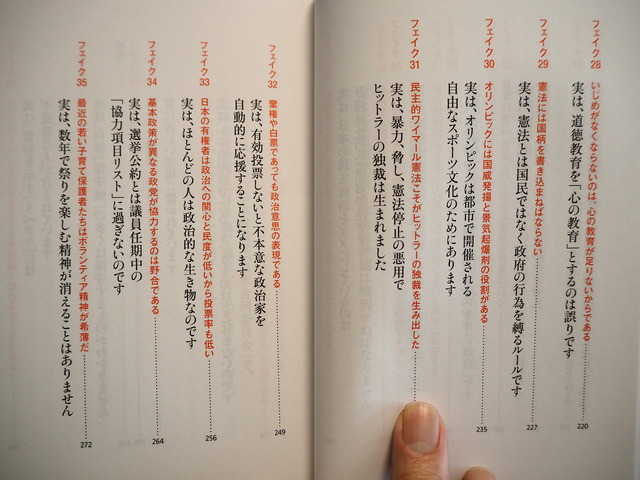 フェイク 28
いじめがなくならないのは、心の教育が足りないからである
実は、道徳教育を「心の教育」とするのは誤りです
220
フェイク 29
憲法には国柄を書き込まねばならない
実は、憲法とは国民ではなく政府の行為を縛るルールです
227
フェイク 30
オリンピックには国威発揚と景気起爆剤の役割がある
実は、オリンピックは都市で開催される
自由なスポーツ文化のためにあります
235
フェイク 31
民主的ワイマール憲法こそがヒットラーの独裁を生み出した
実は、暴力、脅し、憲法停止の悪用で
ヒットラーの独裁は生まれました
フェイク 32
棄権や白票であっても政治意思の表現である
実は、有効投票しないと不本意な政治家を
自動的に応援することになります
249
フェイク 33
日本の有権者は政治への関心と民度が低いから投票率も低い
実は、ほとんどの人は政治的な生き物なのです
256
フェイク 34
基本政策が異なる政党が協力するのは野合である
実は、選挙公約とは議員任期中の
「協力項目リスト」に過ぎないのです
264
フェイク 35
最近の若い子育て保護者たちはボランティア精神が希薄だ
実は、数年で祭りを楽しむ精神が消えることはありません
272